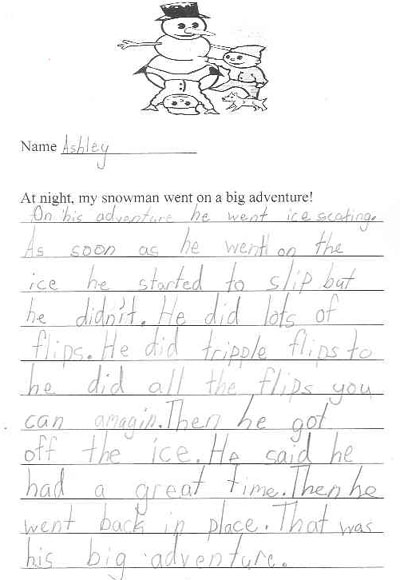 Name Ashley
At night, my snowman went on a big adventure!
On his adventure he went ice scating.
As soon as he went on the
ice he started to slip but
he didnit. He did lots of
flips. He did tripple flips to
he did all the flips you
can amagin. Then he got
off the ice. He said he
had a great time. Then he
went back in place. That was
his big adventure.